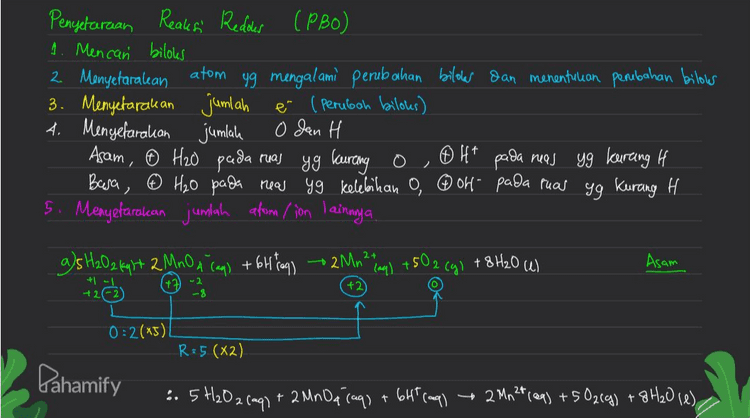 Penyetaraan Reaksi Redoks (PBO)
1. Mencari biloks
2 Menyetarakan atom yg mengalami perubahan biloks dan menentukan perubahan biloks
3. Menyetarakan jumlah e⁻ (perubah biloks)
4. Menyetarakan jumlah O dan H
Asam, ⊕ H₂O pada ruas yg kurang O, ⊕ H⁺ pada ruas yg kurang H
Basa, ⊕ H₂O pada ruas yg kelebihan O, ⊕ OH⁻ pada ruas yg kurang H
5. Menyetarakan jumlah atom/ion lainnya.
a) 5 H₂O₂ (aq) + 2 MnO₄⁻ (aq) + 6H⁺ (aq) → 2 Mn²⁺ (aq) + 5 O₂ (g) + 8 H₂O (l) Asam
+1 -1 +7 -2 +2 0
+2 -2 -8
O = 2 (x5)
R = 5 (x2)
Pahamify
∴ 5 H₂O₂ (aq) + 2 MnO₄⁻ (aq) + 6H⁺ (aq) → 2 Mn²⁺ (aq) + 5 O₂ (g) + 8 H₂O (l)